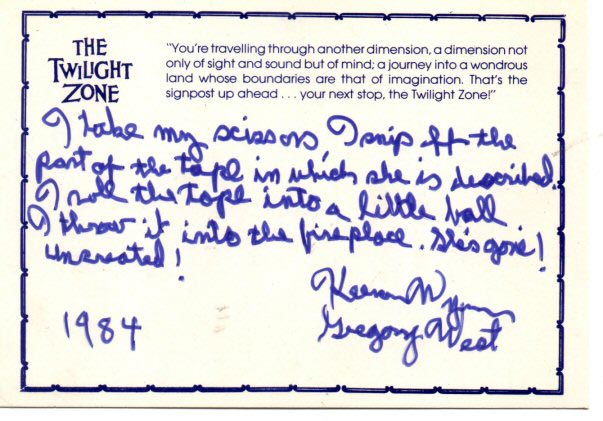 THE
TWILIGHT
ZONE
"You're travelling through another dimension, a dimension not
only of sight and sound but of mind; a journey into a wondrous
land whose boundaries are that of imagination. That's the
signpost up ahead . . . your next stop, the Twilight Zone!"
I take my scissors, I snip off the
part of the tape in which she is described.
I roll the tape into a little ball
I throw it into the fireplace. She's gone!
uncreated!
Keenan Wynn
1984
Gregory West